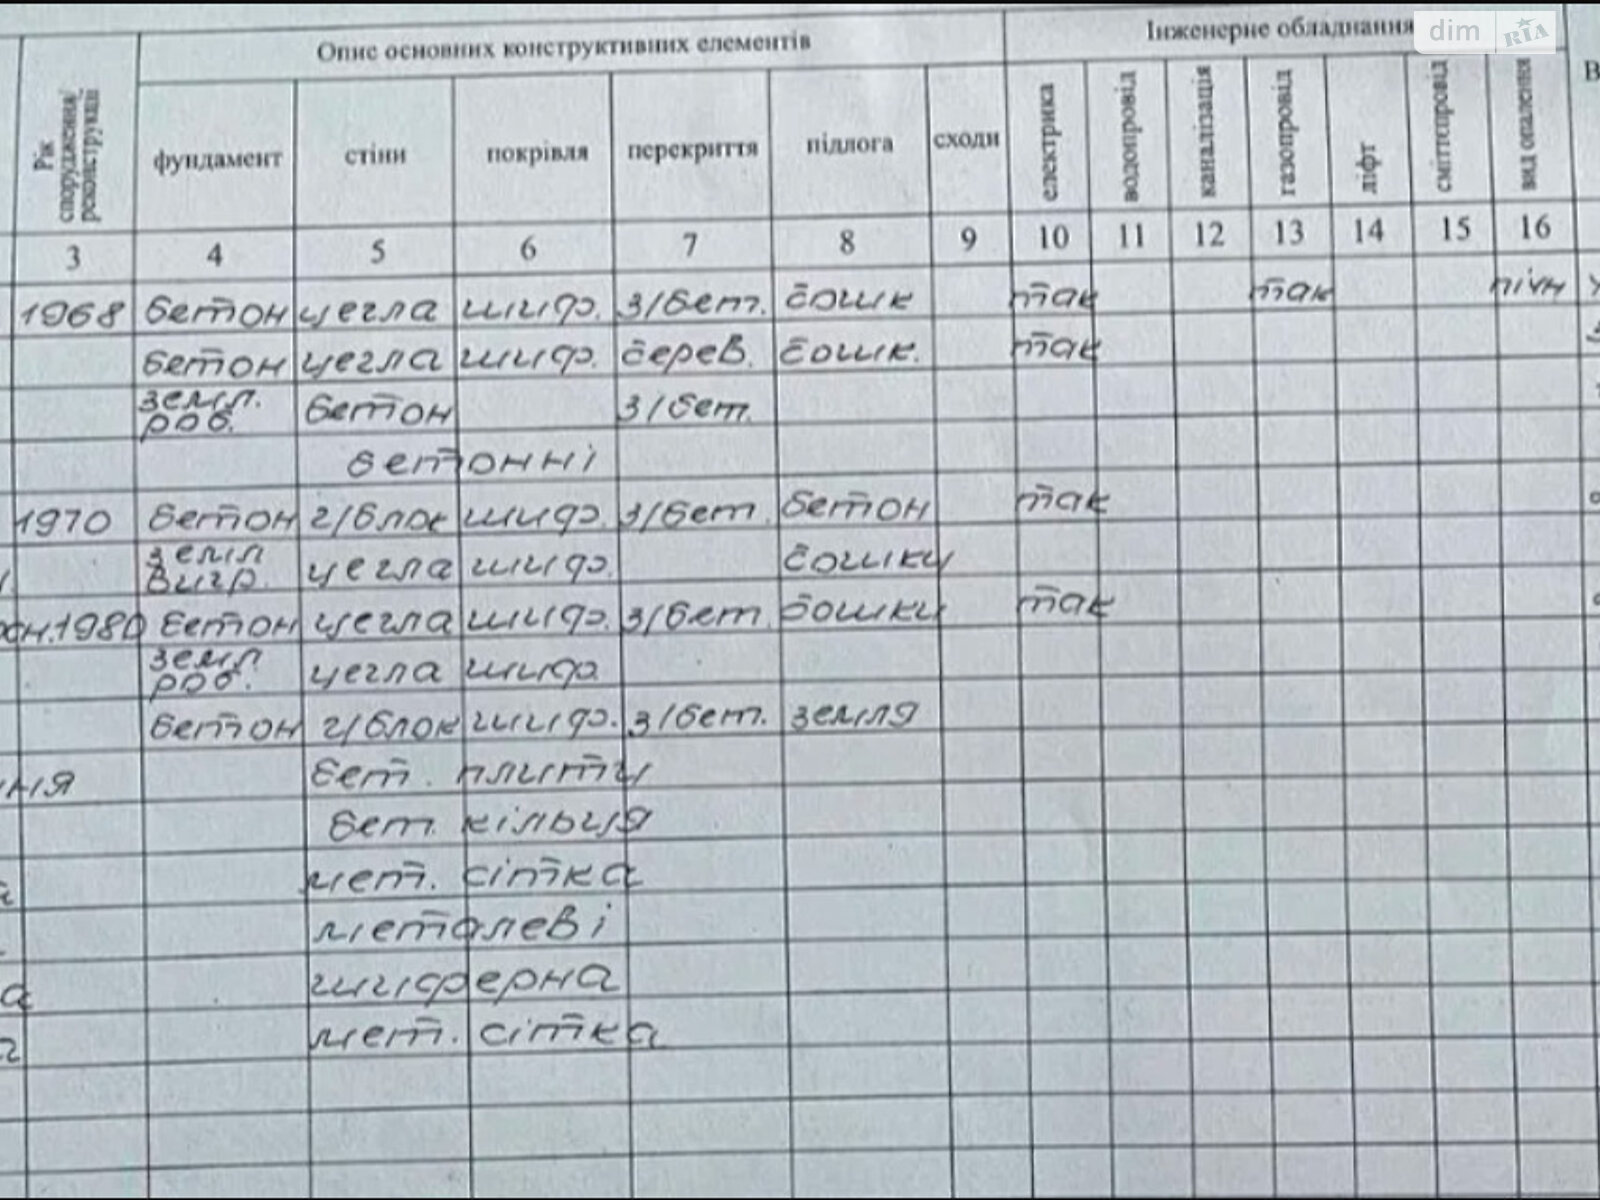 dim RIA
Опис основних конструктивних елементів Інженерне обладнання
Рік спорудження/реконструкції фундамент стіни покрівля перекриття підлога сходи електрика водопровід каналізація газопровід ліфт сміттєпровід вид опалення В
3 4 5 6 7 8 9 10 11 12 13 14 15 16
1968 бетон цегла шиф. з/бет. дошк так так пічн
бетон цегла шиф. дерев. дошк. так
земл. роб. бетон з/бет.
бетонні
1970 бетон г/блок шиф. з/бет. бетон так
земл вигр. цегла шиф. дошки
1980 бетон цегла шиф. з/бет дошки так
земл роб. цегла шиф.
бетон г/блок шиф. з/бет. земля
ня бет. плити
бет. кільця
мет. сітка
металеві
а шиферна
мет. сітка